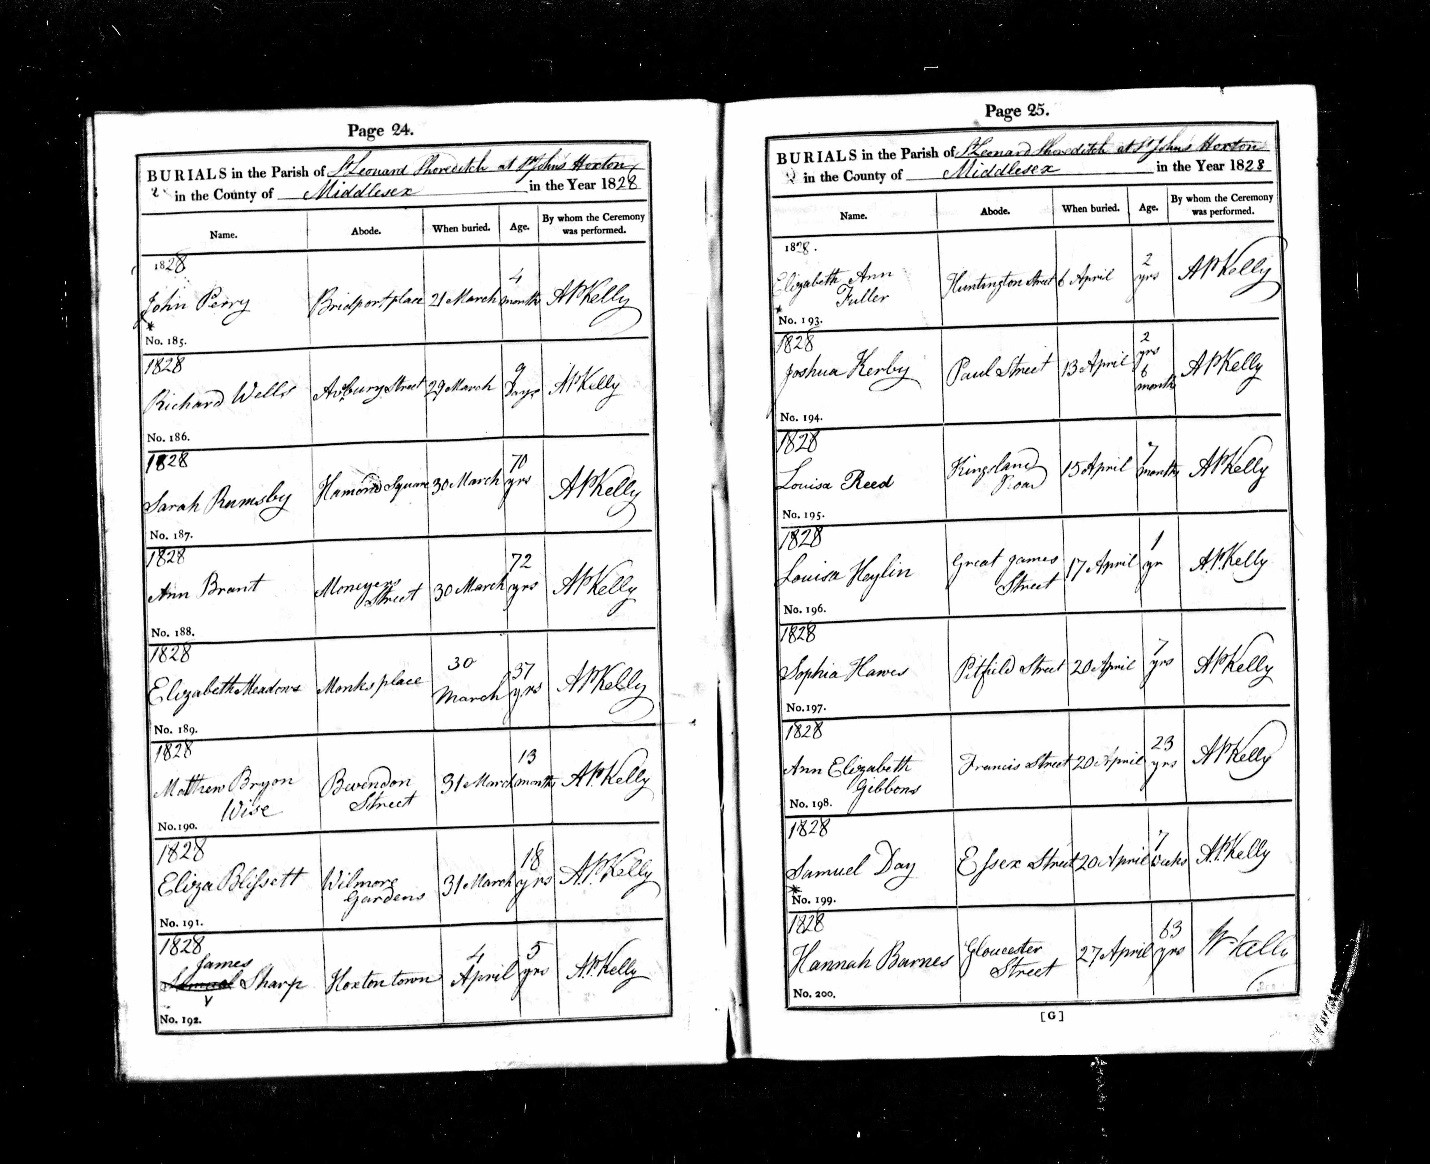 Page 24.
BURIALS in the Parish of St Leonard Shoreditch at St John's Hoxton
in the County of Middlesex in the Year 1828
Name. Abode. When buried. Age. By whom the Ceremony was performed.
1828
John Perry Bridport place 21 March 4 months AP Kelly
No. 185.
1828
Richard Wells Avbury Street 29 March 9 Days AP Kelly
No. 186.
1828
Sarah Rumsby Hamond Square 30 March 70 yrs AP Kelly
No. 187.
1828
Ann Brant Moneyers Street 30 March 72 yrs AP Kelly
No. 188.
1828
Elizabeth Meadows Monks place 30 March 37 yrs AP Kelly
No. 189.
1828
Matthew Bryon Wise Bevendon Street 31 March 13 months AP Kelly
No. 190.
1828
Eliza Blissett Wilmore Gardens 31 March 18 yrs AP Kelly
No. 191.
1828
James
Sharp Hoxton town 4 April 5 yrs AP Kelly
No. 192.
Page 25.
BURIALS in the Parish of St Leonard Shoreditch at St John's Hoxton
in the County of Middlesex in the Year 1828
Name. Abode. When buried. Age. By whom the Ceremony was performed.
1828.
Elizabeth Ann Fuller Huntington Street 6 April 2 yrs AP Kelly
No. 193.
1828
Joshua Kerby Paul Street 13 April 2 yrs 6 months AP Kelly
No. 194.
1828
Louisa Reed Kingsland Road 15 April 7 months AP Kelly
No. 195.
1828
Louisa Heylin Great James Street 17 April 1 yr AP Kelly
No. 196.
1828
Sophia Hawes Pitfield Street 20 April 7 yrs AP Kelly
No. 197.
1828
Ann Elizabeth Gibbons Francis Street 20 April 23 yrs AP Kelly
No. 198.
1828
Samuel Day Essex Street 20 April 7 weeks AP Kelly
No. 199.
1828
Hannah Barnes Gloucester Street 27 April 63 yrs AP Kelly
No. 200.
[G]